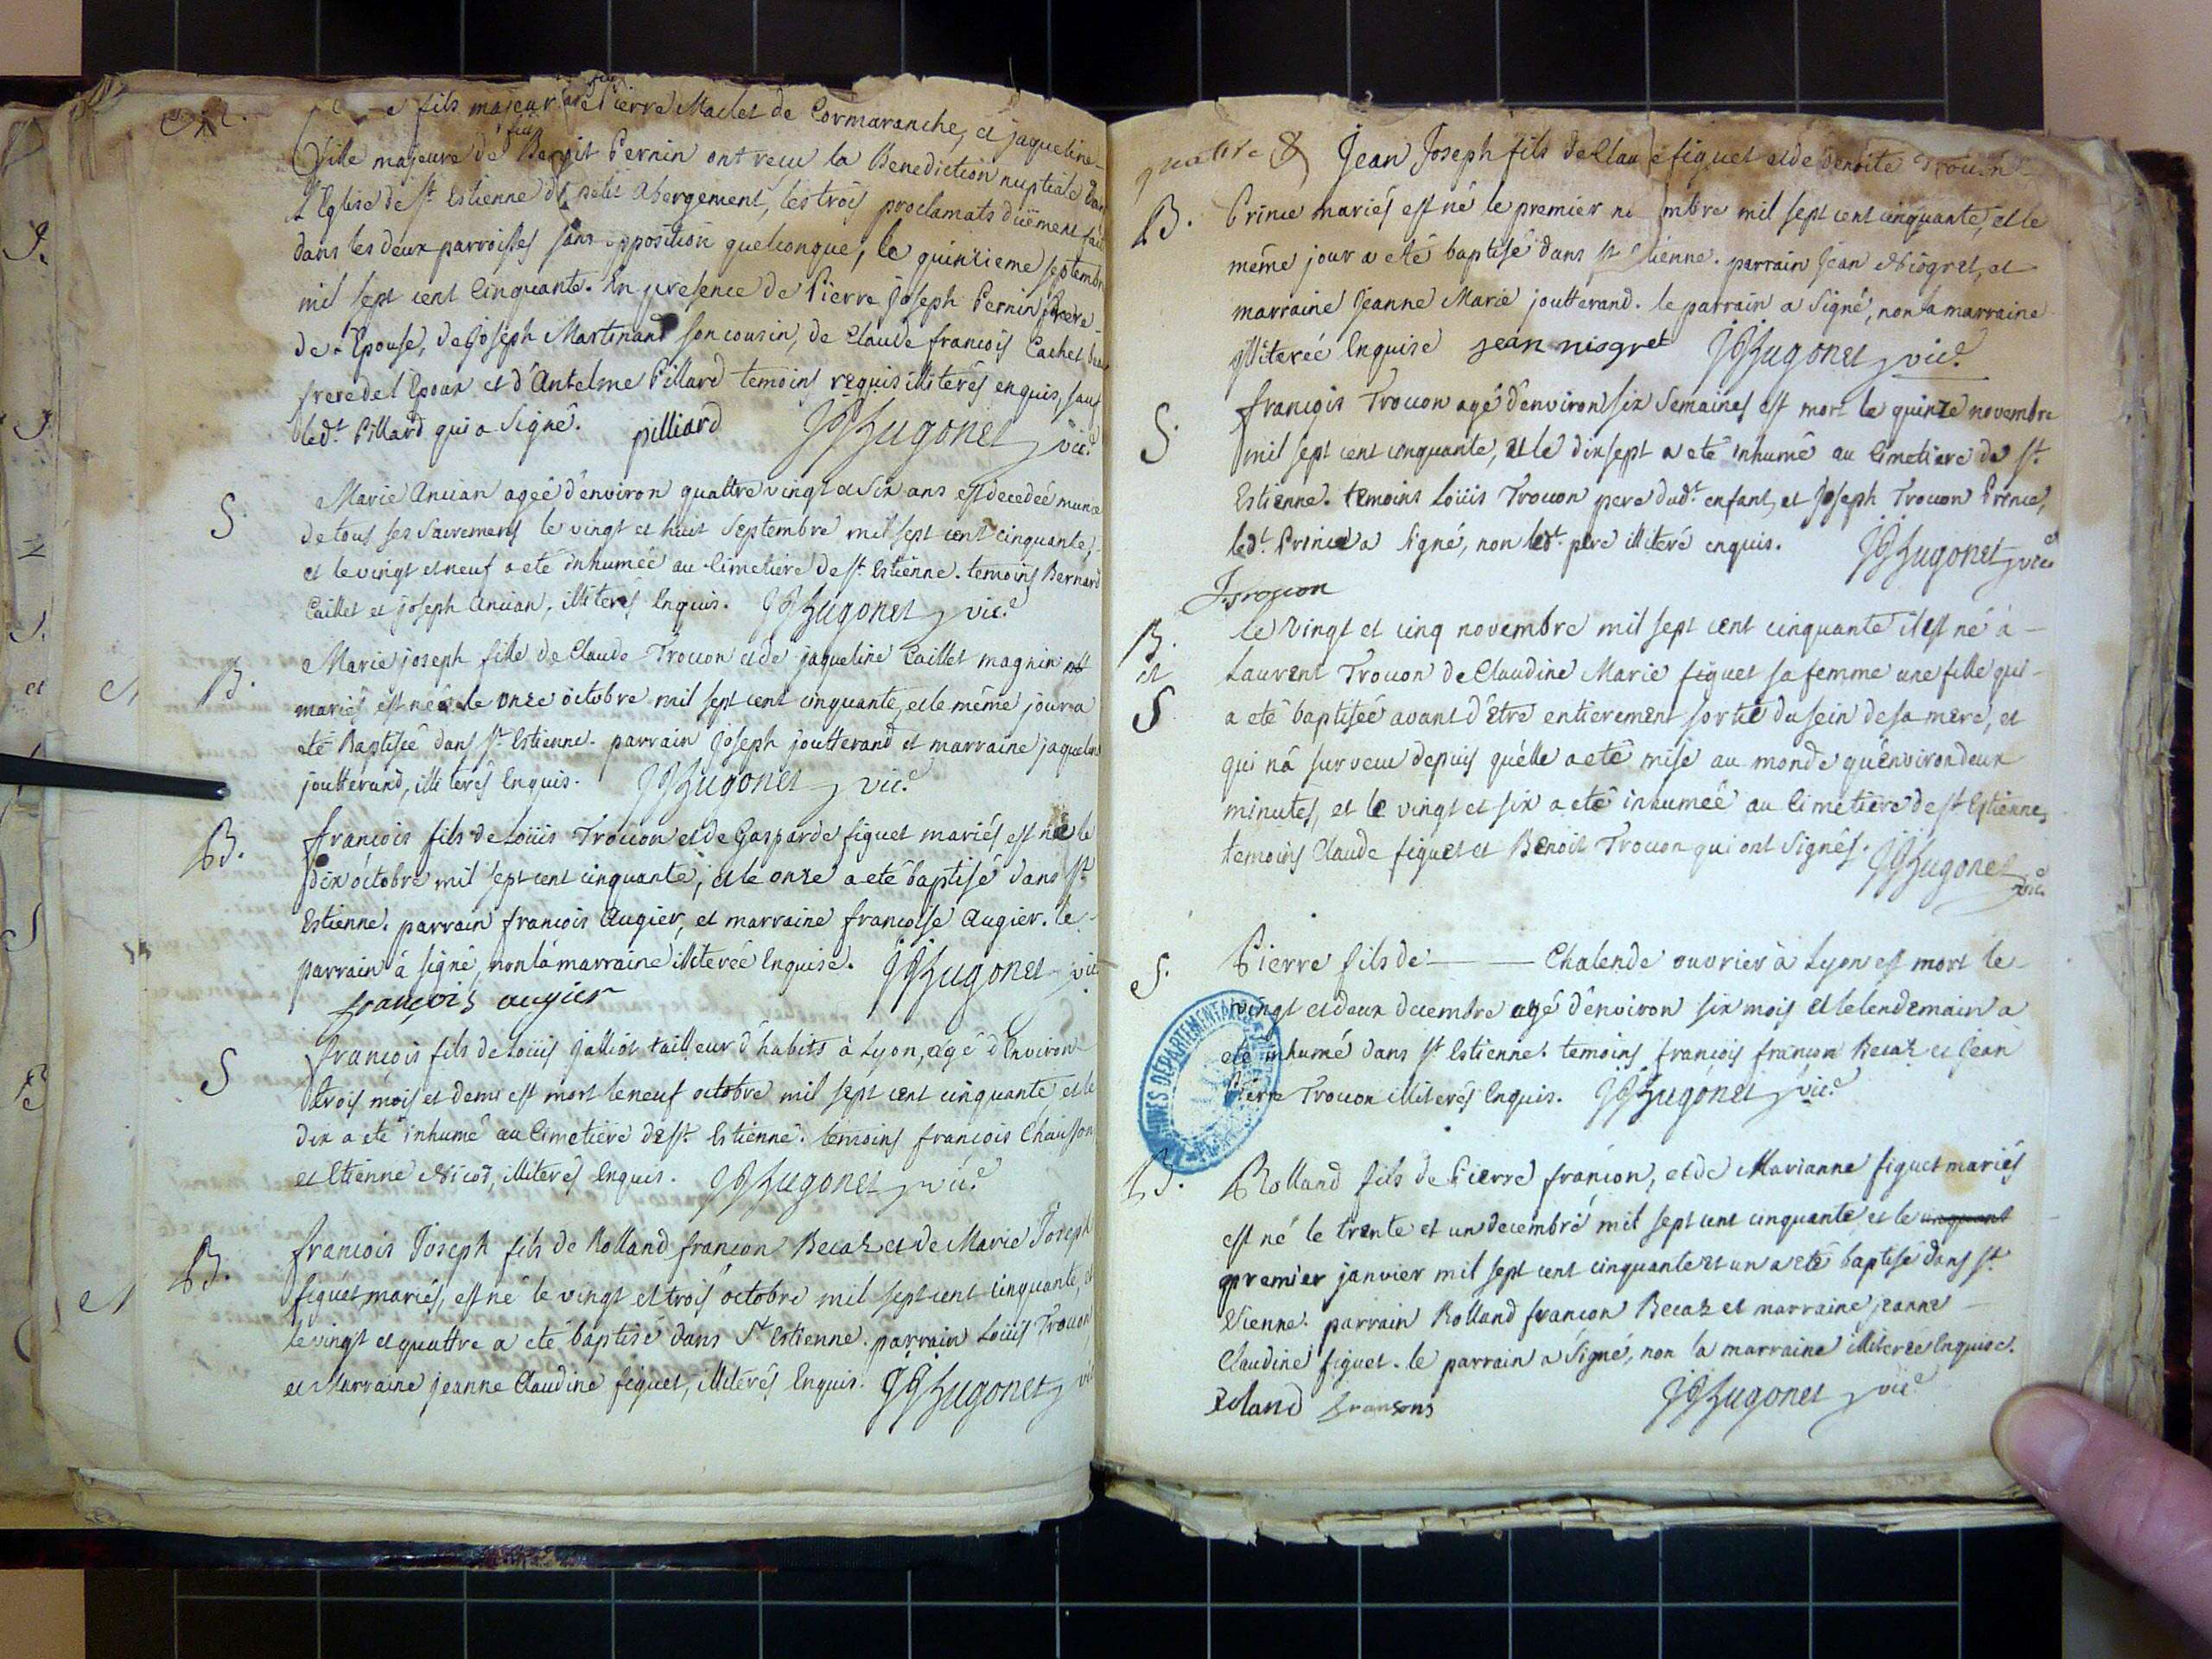 fils majeur de feu Pierre Maclet de Cormaranche, et jaqueline
fille majeure de feu Benoit Pernin ont recu la Benediction nuptiale dans
L'Eglise de St. Estienne du petit abergement, les trois proclamats düement fait
dans les deux parroisses sans opposition quelconque, le quinzieme septembre
mil sept cent Cinquante. En presence de Pierre Joseph Pernin frere
de l'Epouse, de Joseph Martinand son cousin, de Claude francois Cachet beau
frere de l'Epoux et d'Antelme Pillard temoins requis illiterés enquis, sauf
ledt. Pillard qui a Signé. pilliard JGHugonet vice.
S. Marie Ancian ageé d'environ quattre vingt et Six ans est decedeé munie
de tous ses Sacremens le vingt et huit Septembre mil sept cent cinquante,
et le vingt et neuf a eté inhumeé au Cimetiere de St. Estienne. temoins Bernard
Caillet et joseph Ancian, illiterés Enquis. JGHugonet vice.
B. Marie joseph fille de Claude Trouon et de jaqueline Caillet magnin
mariés est neé le onze octobre mil sept cent cinquante, et le même jour a
eté Baptiseé dans St. Estienne. parrain Joseph joutterand et marraine jaqueline
joutterand, illiterés Enquis. JGHugonet vice.
B. francois fils de Loüis Trouon et de Gasparde figuet mariés est né le
dix octobre mil sept cent cinquante, et le onze a eté baptisé dans St.
Estienne. parrain francois Augier, et marraine francoise Augier. le
parrain a signé, non la marraine illitereé Enquise. JGHugonet vic
françois augier
S francois fils de Loüis jalliot tailleur d'habits à Lyon, agé d'Environ
trois mois et demi est mort le neuf octobre mil sept cent cinquante et le
dix a eté inhumé au Cimetiere de St. Estienne. temoins francois Chausson
et Etienne Nicod, illiterés Enquis. JGHugonet vice.
B. francois Joseph fils de Rolland francon Becaz et de Marie Joseph
figuet mariés, est né le vingt et trois octobre mil sept cent cinquante, et
le vingt et quattre a eté baptisé dans St. Estienne. parrain Loüis Trouon
et Marraine jeanne Claudine figuet, illiterés Enquis. JGHugonet vic
quattre & Jean Joseph fils de Clau e figuet et de Benoite Trouon
B. Prince mariés est né le premier no mbre mil sept cent cinquante, et le
même jour a eté baptisé dans St Etienne. parrain Jean Niogret, et
marraine Jeanne Marie joutterand. le parrain a Signé, non la marraine
illitereé Enquise jean niogret JGHugonet vice.
S. francois Trouon agé d'environ six Semaines est mort le quinze novembre
mil sept cent cinquante, et le dix sept a eté inhumé au Cimetiere de St.
Estienne. temoins Loüis Trouon pere dudt. enfant, et Joseph Trouon Prince,
ledt. Prince a Signé, non ledt. pere illiteré enquis. JGHugonet vice
J. trouon
B. le Vingt et cinq novembre mil sept cent cinquante il est né a
et Laurent Trouon de Claudine Marie figuet sa femme une fille qui
S a eté baptiseé avant d'être entierement sortie du sein de sa mere, et
qui n'a surveçu depuis qu'elle a eté mise au monde qu'environ deux
minutes, et le vingt et six a eté inhumeé au Cimetiere de St Estienne,
temoins Claude figuet et Benoit Trouon qui ont Signés. JGHugonet
vice
S. Pierre fils de —— Chalende ouvrier à Lyon est mort le
vingt et deux decembre agé d'environ six mois et le lendemain a
eté inhumé dans St Estienne. temoins francois francon Becaz et Jean
Pierre Trouon illiterés Enquis. JGHugonet vice.
ARCHIVES DEPARTEMENTALES
B. Rolland fils de Pierre francon, et de Marianne figuet mariés
est né le trente et un decembre mil sept cent cinquante et le cinquant
premier janvier mil sept cent cinquante et un a eté baptisé dans St.
Etienne. parrain Rolland francon Becaz et marraine jeanne
Claudine figuet. le parrain a Signé, non la marraine illitereé Enquise.
Roland fransons JGHugonet vice